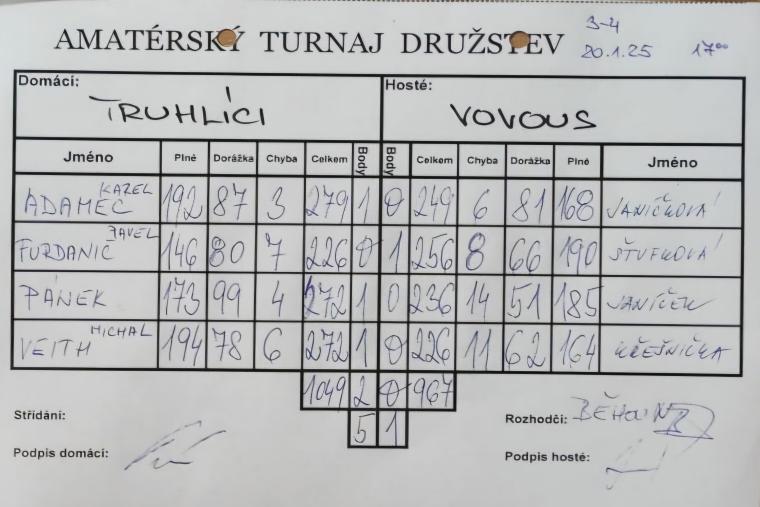 3-4
AMATÉRSKÝ TURNAJ DRUŽSTEV 20.1.25 17⁰⁰
Domácí: TRUHLÍCI Hosté: VOVOUS
Jméno Plné Dorážka Chyba Celkem Body Body Celkem Chyba Dorážka Plné Jméno
ADAMEC KAREL 192 87 3 279 1 0 249 6 81 168 JANÍČKOVÁ
FURDANIČ PAVEL 146 80 7 226 0 1 256 8 66 190 ŠTUFKOVÁ
PÁNEK 173 99 4 272 1 0 236 14 51 185 JANÍČEK
VEITH MICHAL 194 78 6 272 1 0 226 11 62 164 KŘEŠNIČKA
1049 2 0 967
Střídání: 5 1 Rozhodčí:
Podpis domácí: Podpis hosté: